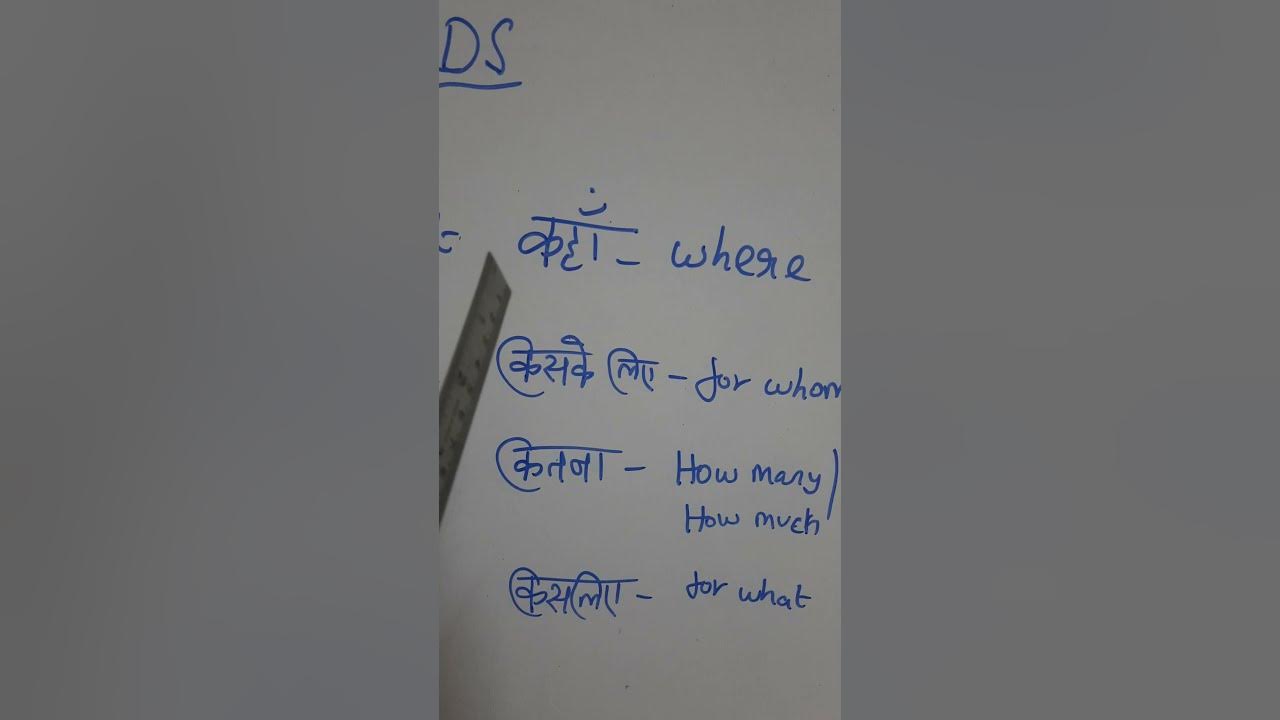 DS
कहाँ - where
किसके लिए - for whom
कितना - How many/
How much
किसलिए - for what